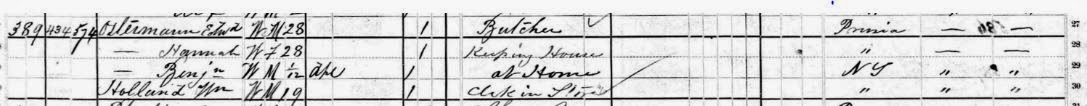 389 434 574 Ostermann Edwd W M 28 1 Butcher Prusia — — 27
— Hannah W F 28 1 Keeping House " — — 28
— Benjn W M 1/12 Apl 1 at Home NY " " 29
Holland Wm W M 19 1 Clk in Store " " " 30